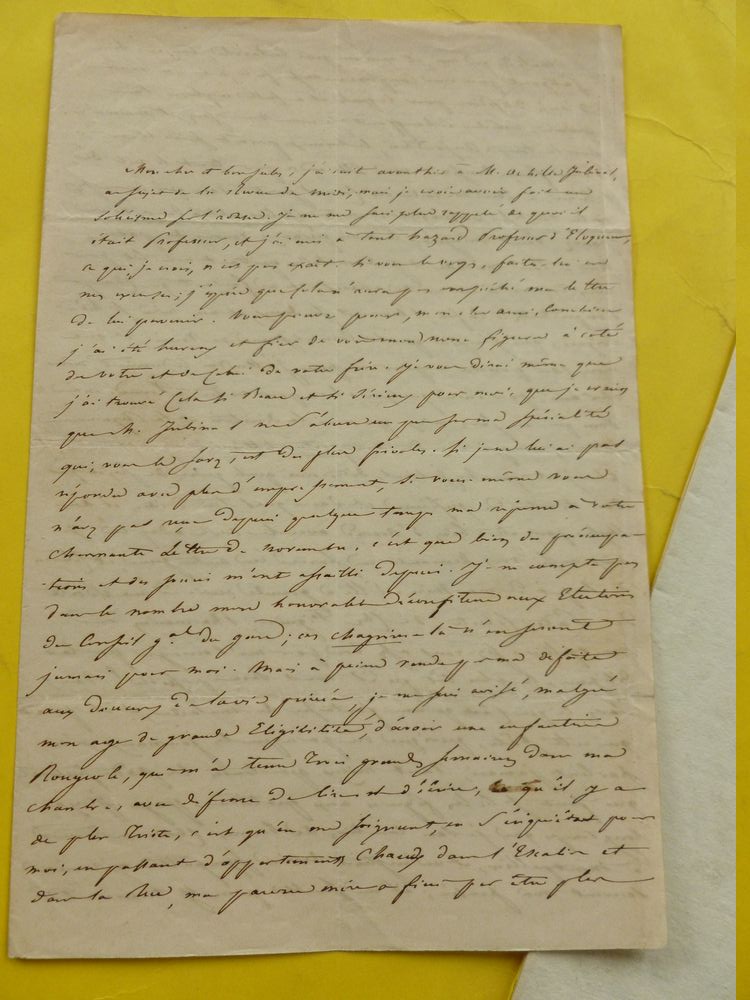 Mon cher et bon Jules, j'ai écrit avanthier à M. Achille Jubinal,
au sujet de la Revue du Midi, mais je crois avoir fait une
solécisme sur l'adresse. Je ne me suis plus rappelé de quoi il
était Professeur, et j'ai mis à tout hazard Professeur d'Eloquence,
ce qui, je crois, n'est pas exact. Si vous le voyez, faites-lui en
mes excuses; j'espère que cela n'aura pas empêché ma lettre
de lui parvenir. Vous pensez, mon cher ami, combien
j'ai été heureux et fier de voir mon nom figurer à coté
du votre et de celui de votre frère. Je vous dirai même que
j'ai trouvé cela si Beau et si sérieux pour moi, que je crains
que M. Jubinal ne s'abuse un peu sur ma spécialité
qui, vous le savez, est des plus frivoles. Si je ne lui ai pas
répondu avec plus d'empressement, si vous-même vous
n'avez pas reçu depuis quelque temps ma réponse à votre
charmante Lettre de novembre, c'est que bien des préoccupa-
-tions et des soucis m'ont assailli depuis. Je ne compte pas
dans le nombre mon honorable déconfiture aux Elections
du Conseil g.al du gard; ces chagrins-là n'en seront
jamais pour moi. Mais à peine rendu par ma défaite
aux douceurs de la vie privée, je me suis avisé, malgré
mon age de grande Eligibilité, d'avoir une enfantine
Rougeole, qui m'a tenu Trois grandes semaines dans ma
chambre, avec défense de lire et d'écrire, ce qu'il y a
de plus Triste, c'est qu'en me soignant, en s'inquiétant pour
moi, en passant d'appartements Chauds dans l'Escalier et
dans la Rue, ma pauvre mère a fini par être plus